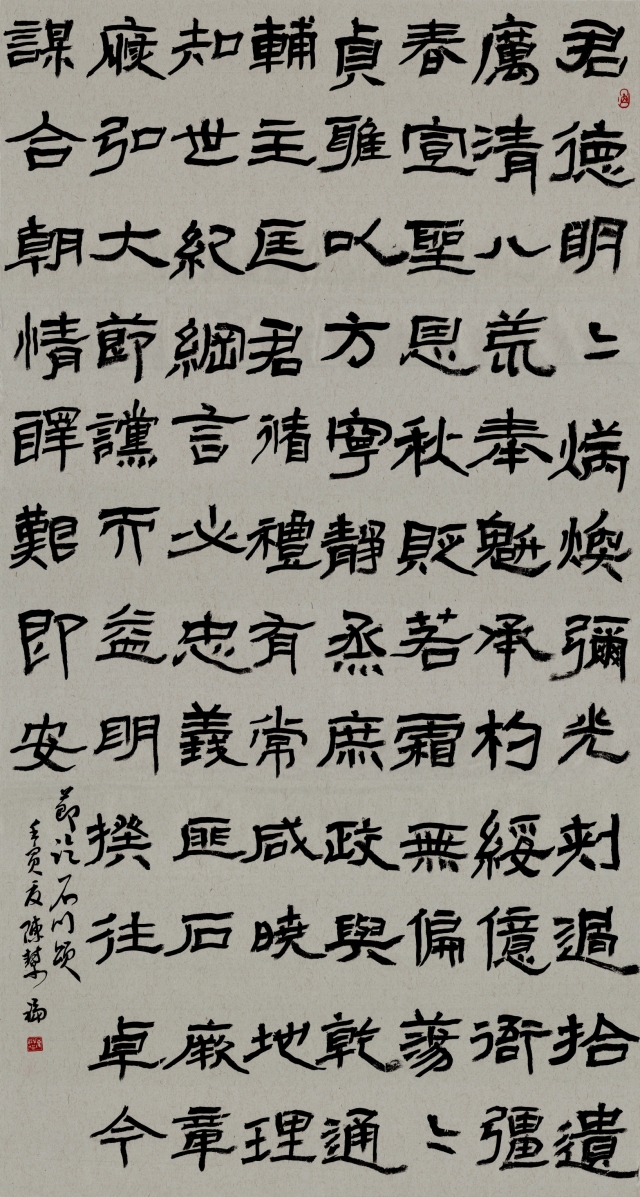 君德明〻炳煥彌光刺過拾遺
厲清八荒奉魁承杓綏億衙彊
春宣聖恩秋貶若霜無偏蕩〻
貞雅以方寧靜烝庶政與乾通
輔主匡君循禮有常咸曉地理
知世紀綱言必忠義匪石厥章
恢弘大節讜而益明揆往卓今
謀合朝情醳艱即安
節臨石門頌
壬寅夏陳